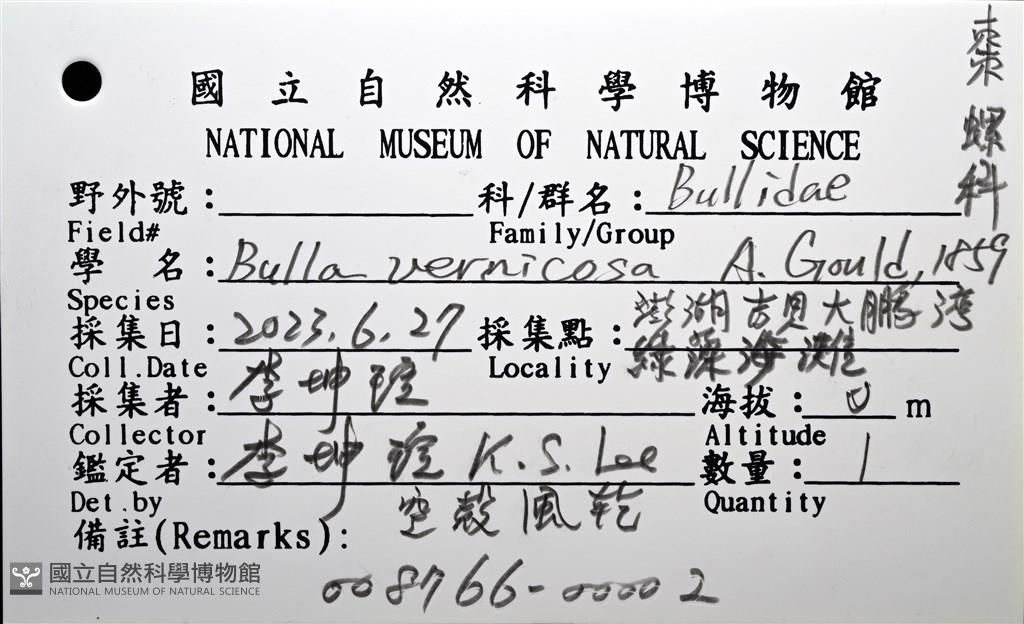 國立自然科學博物館
NATIONAL MUSEUM OF NATURAL SCIENCE
棗螺科
野外號： 科/群名：Bullidae
Field# Family/Group
學名：Bulla vernicosa A. Gould, 1859
Species
澎湖吉貝大鵬灣
採集日：2023.6.27 採集點：綠藻海灘
Coll.Date Locality
採集者：李坤瑄 海拔：0 m
Collector Altitude
鑑定者：李坤瑄 K.S. Lee 數量：1
Det.by Quantity
空殼風乾
備註(Remarks):
008766-00002
國立自然科學博物館
NATIONAL MUSEUM OF NATURAL SCIENCE